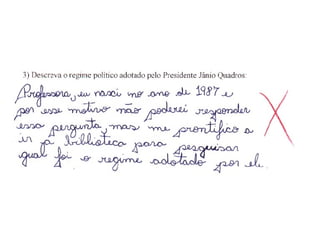 3) Descreva o regime político adotado pelo Presidente Jânio Quadros:
Professora, eu nasci no ano de 1987 e
por esse motivo não poderei responder
essa pergunta, mas me prontifico a
ir a biblioteca para pesquisar
qual foi o regime adotado por ele.